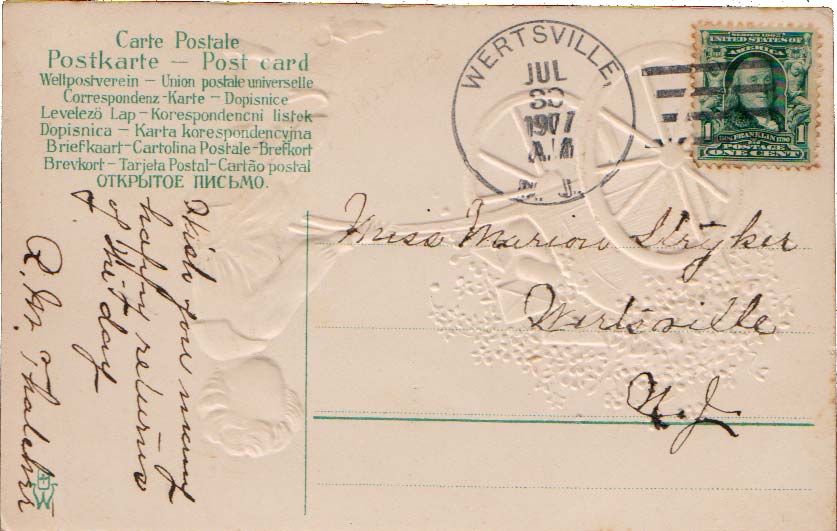 Carte Postale
Postkarte — Post card
Weltpostverein — Union postale universelle
Correspondenz-Karte — Dopisnice
Levelező Lap — Korespondencni listek
Dopisnica — Karta korespondencyjna
Briefkaart — Cartolina Postale - Brefkort
Brevkort — Tarjeta Postal - Cartão postal
ОТКРЫТОЕ ПИСЬМО.
Wish you many
happy returns
of the day
R. W. Thatcher
WERTSVILLE,
JUL
30
1907
AM
N. J.
SERIES 1902
UNITED STATES OF
AMERICA
1 FRANKLIN 1790 1
POSTAGE
ONE CENT
Miss Marion Stryker
Wertsville
N. J.